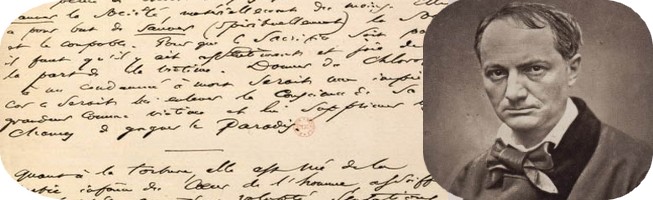 peine de
sauver la Société, matériellement du moins. Elle
a pour but de sauver (spirituellement) la So
et le coupable. Pour que le Sacrifice soit pa
il faut qu'il y ait assentiment et joie de
la part de la victime. Donner du Chloro
à un condamné à mort serait une impié
car ce serait lui enlever la Conscience de Sa
grandeur comme victime et lui supprimer l
chances de gagner le Paradis.
Quant à la torture, elle est née de la
partie infâme du Cœur de l'homme, assoiff
volupté, Sensations